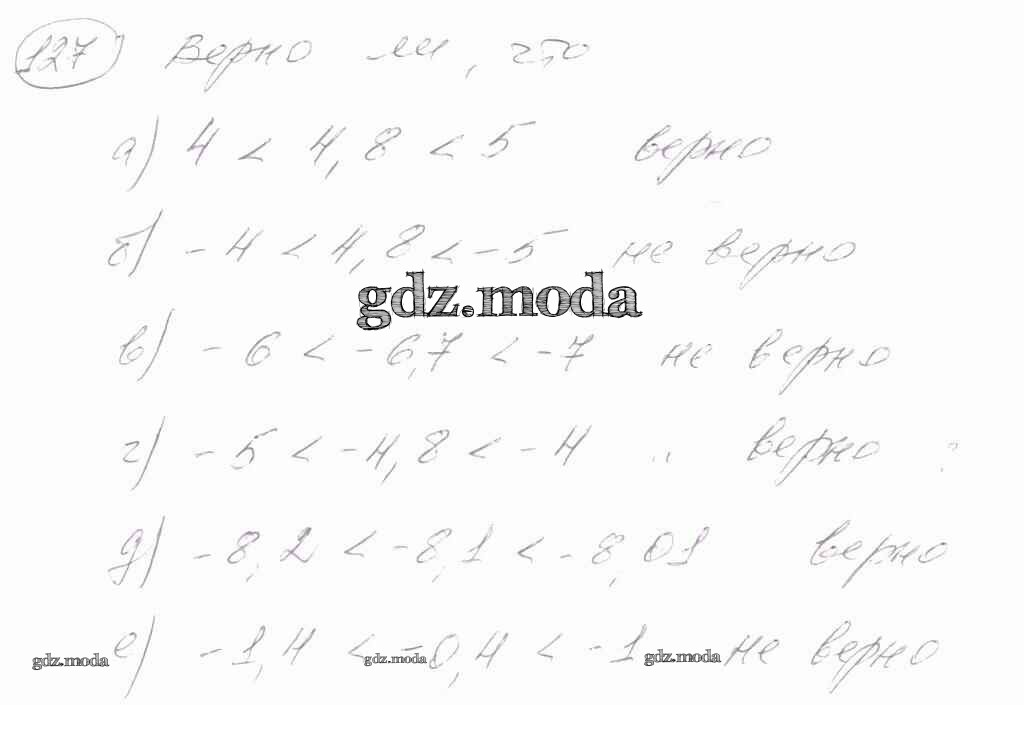 127) Верно ли, что
а) 4 < 4,8 < 5 верно
б) -4 < 4,8 < -5 не верно
gdz.moda
в) -6 < -6,7 < -7 не верно
г) -5 < -4,8 < -4 верно
д) -8,2 < -8,1 < -8,01 верно
е) -1,4 < -0,4 < -1 не верно
gdz.moda gdz.moda gdz.moda